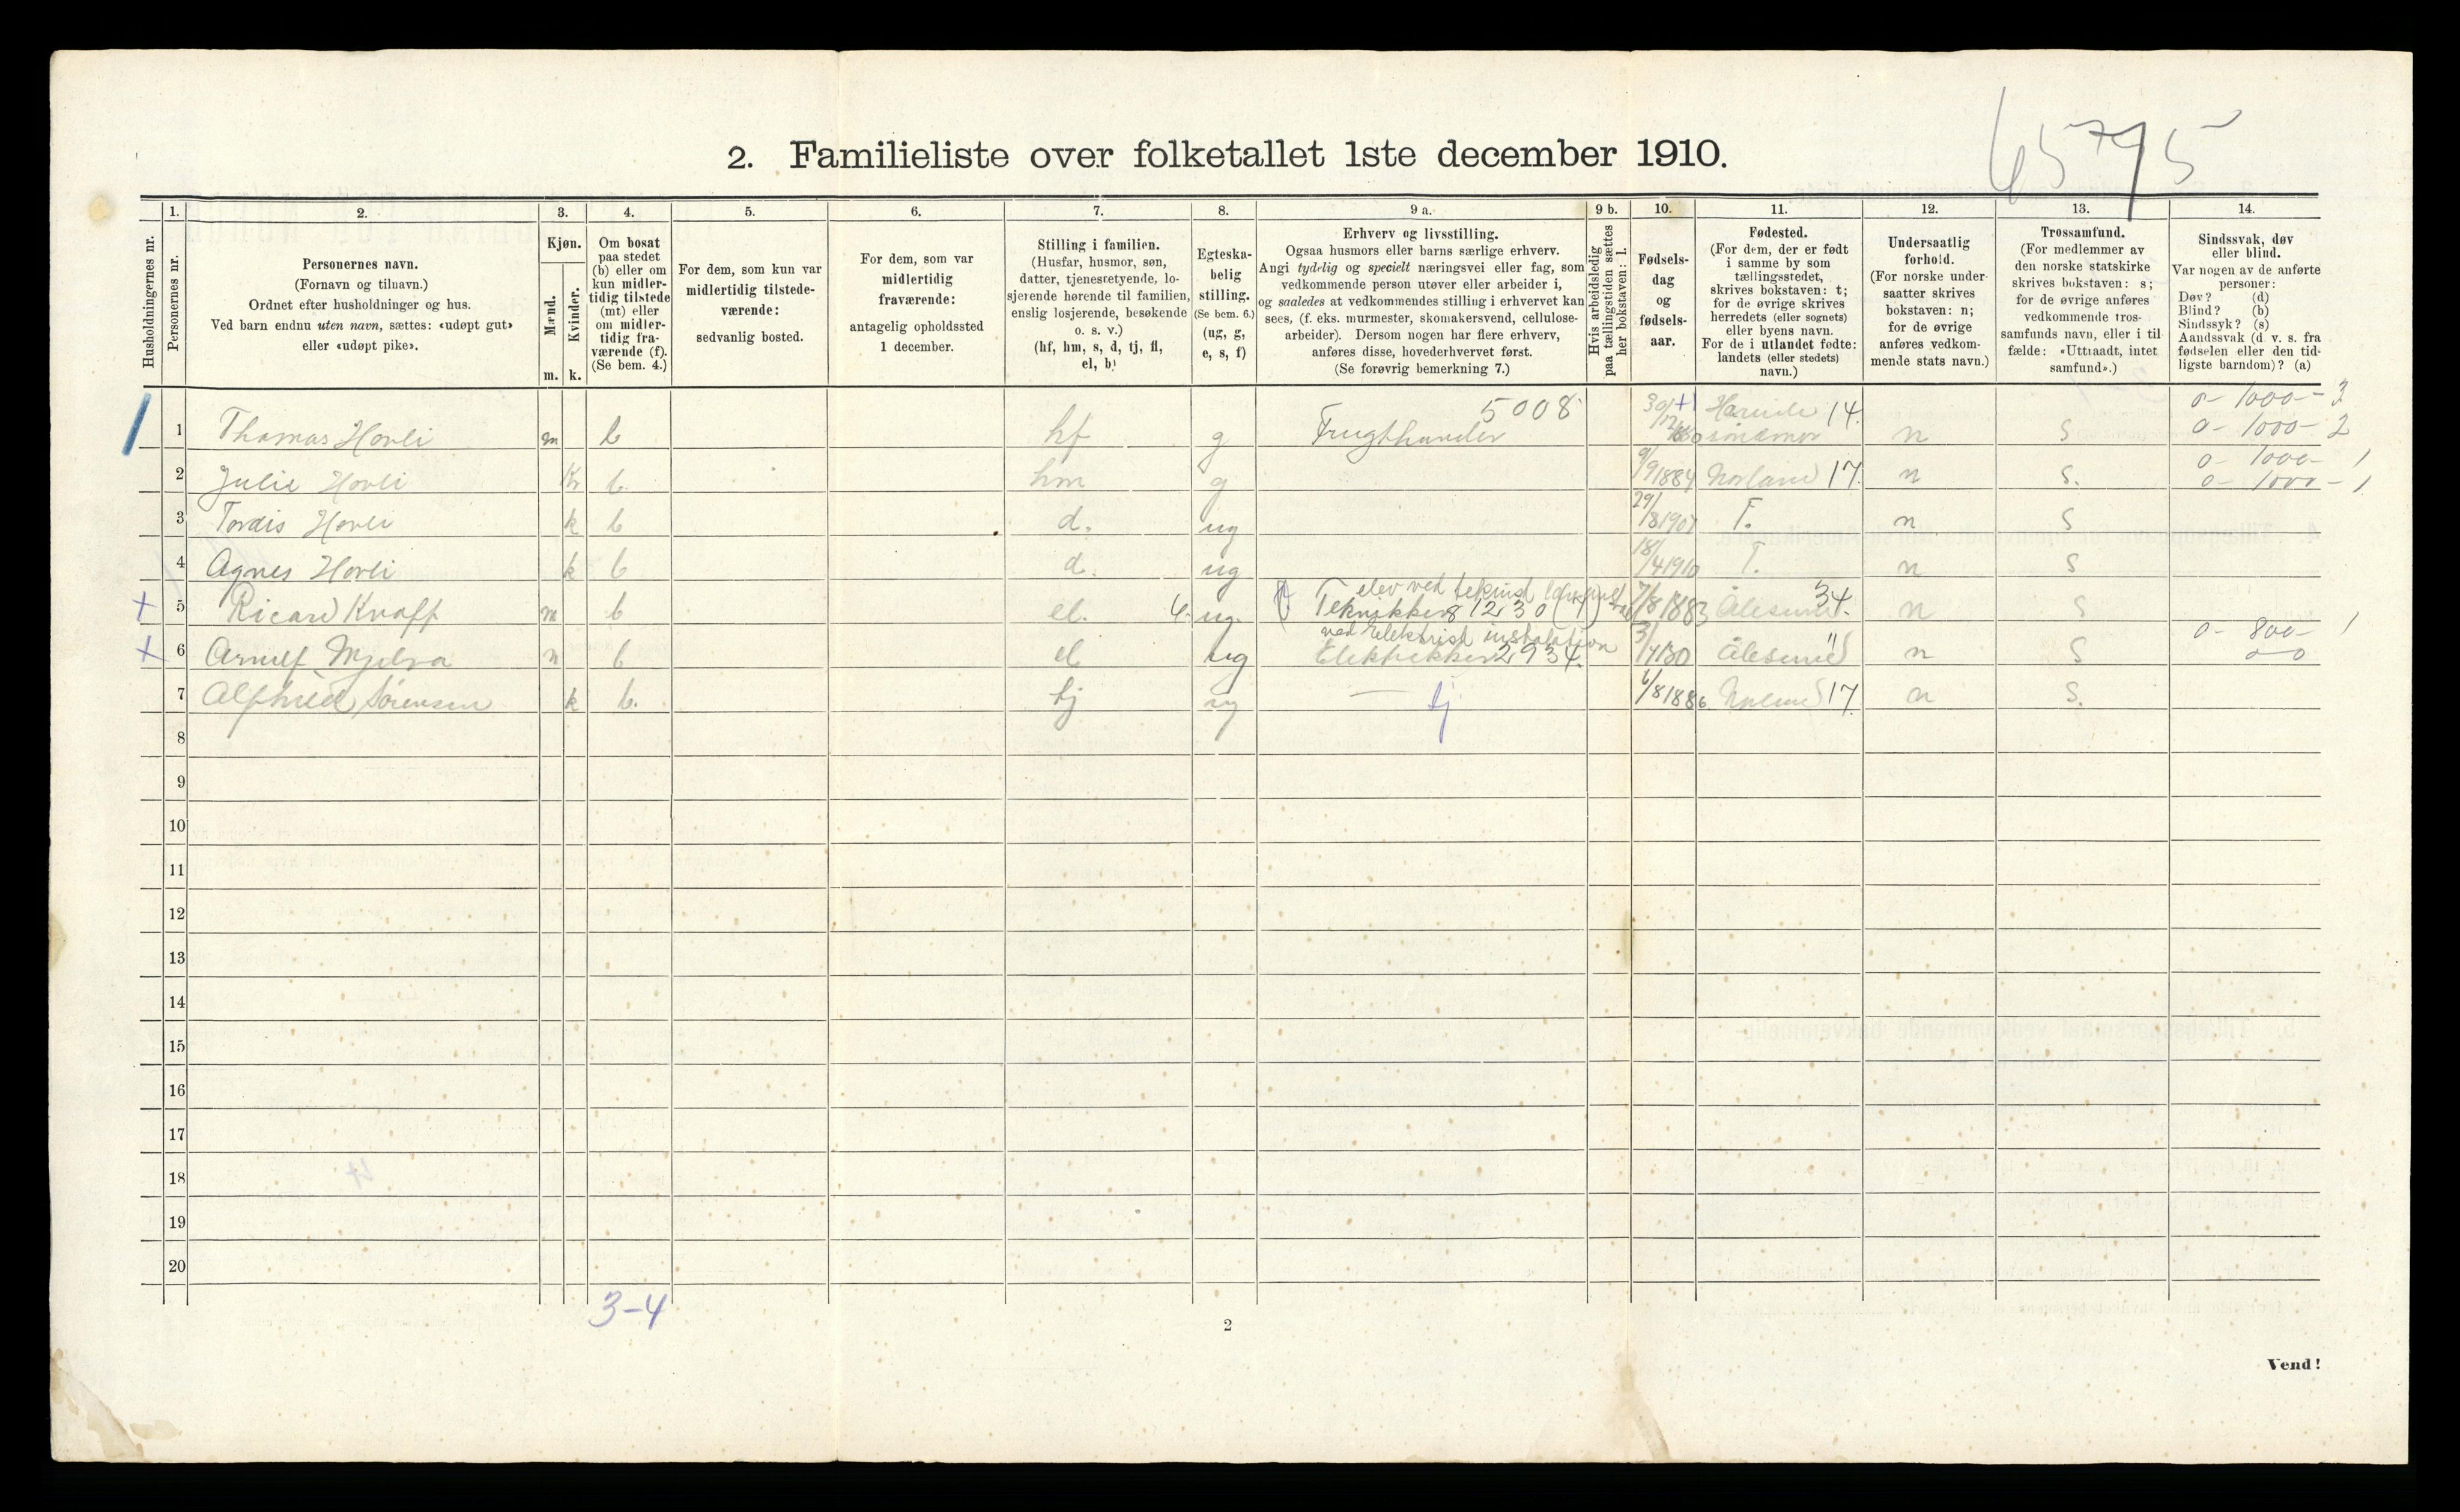 65795
2. Familieliste over folketallet 1ste december 1910.
1. 2. 3. 4. 5. 6. 7. 8. 9 a. 9 b. 10. 11. 12. 13. 14.
Husholdningernes nr.
Personernes nr.
Personernes navn.
(Fornavn og tilnavn.)
Ordnet efter husholdninger og hus.
Ved barn endnu uten navn, sættes: «udøpt gut»
eller «udøpt pike».
Kjøn.
Mænd.
Kvinder.
m. k.
Om bosat
paa stedet
(b) eller om
kun midler-
tidig tilstede
(mt) eller
om midler-
tidig fra-
værende (f).
(Se bem. 4.)
For dem, som kun var
midlertidig tilstede-
værende:
sedvanlig bosted.
For dem, som var
midlertidig
fraværende:
antagelig opholdssted
1 december.
Stilling i familien.
(Husfar, husmor, søn,
datter, tjenestetyende, lo-
sjerende hørende til familien,
enslig losjerende, besøkende
o. s. v.)
(hf, hm, s, d, tj, fl,
el, b)
Egteska-
belig
stilling.
(Se bem. 6.)
(ug, g,
e, s, f)
Erhverv og livsstilling.
Ogsaa husmors eller barns særlige erhverv.
Angi tydelig og specielt næringsvei eller fag, som
vedkommende person utøver eller arbeider i,
og saaledes at vedkommendes stilling i erhvervet kan
sees, (f. eks. murmester, skomakersvend, cellulose-
arbeider). Dersom nogen har flere erhverv,
anføres disse, hovederhvervet først.
(Se forøvrig bemerkning 7.)
Hvis arbeidsledig
paa tællingstiden sættes
her bokstaven: l.
Fødsels-
dag
og
fødsels-
aar.
Fødested.
(For dem, der er født
i samme by som
tællingsstedet,
skrives bokstaven: t;
for de øvrige skrives
herredets (eller sognets)
eller byens navn.
For de i utlandet fødte:
landets (eller stedets)
navn.)
Undersaatlig
forhold.
(For norske under-
saatter skrives
bokstaven: n;
for de øvrige
anføres vedkom-
mende stats navn.)
Trossamfund.
(For medlemmer av
den norske statskirke
skrives bokstaven: s;
for de øvrige anføres
vedkommende tros-
samfunds navn, eller i til-
fælde: «Uttraadt, intet
samfund».)
Sindssvak, døv
eller blind.
Var nogen av de anførte
personer:
Døv? (d)
Blind? (b)
Sindssyk? (s)
Aandssvak (d. v. s. fra
fødselen eller den tid-
ligste barndom)? (a)
5008 0- 1000- 3
1 Thomas Hovli m b hf g Frugthandler 30/12 14. n s 0- 1000- 2
0- 1000- 1
2 Julie Hovli k b. hm g 9/9 1884 Norland 17. n s. 0- 1000- 1
3 Tordis Hovli k b d. ug 29/8 1907 T. n s
4 Agnes Hovli k b d. ug 18/4 1910 T. n s
elev ved teknisk
5 Ricard Knoff m b el. 4. ug. Teknikker 81230 7/8 1883 Ålesund 34. n s
ved Elektrisk instalation 0- 800- 1
6 Arnulf Mjelva m b el ug Elektrikker 2934. 3/4 Ålesund " n s 0-0
7 Alfhild Sørensen k b. tj ug — tj 6/8 1886 17. n s.
8
9
10
11
12
13
14
15
16
17
18
19
20
3-4
2
Vend!